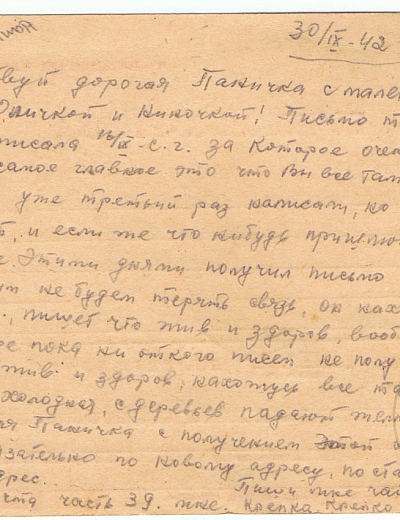 30/IX-42
вуй дорогая Паничка с мален
ничкой и Ниночкой! Письмо т
писала 16/IX-с.г. за которое очен
самое главное это что Вы все там
уже третий раз написали, ко
и если же что нибудь пришлют
Этими днями получил письмо
не будем терять связь, он нах
пишет что жив и здоров, вооб
пока ни откого писем не полу
жив и здоров, нахожусь все та
холодная, с деревьев падают жел
Паничка с получением этой
язательно по новому адресу, по ста
дрес. Пиши мне ча
чта часть 39. мне. Крепко Крепко